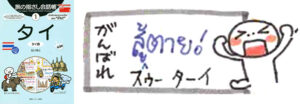 旅の指さし会話帳
1
タイ
タイ語
がんばれ
สู้ตาย!
スゥー ターイ